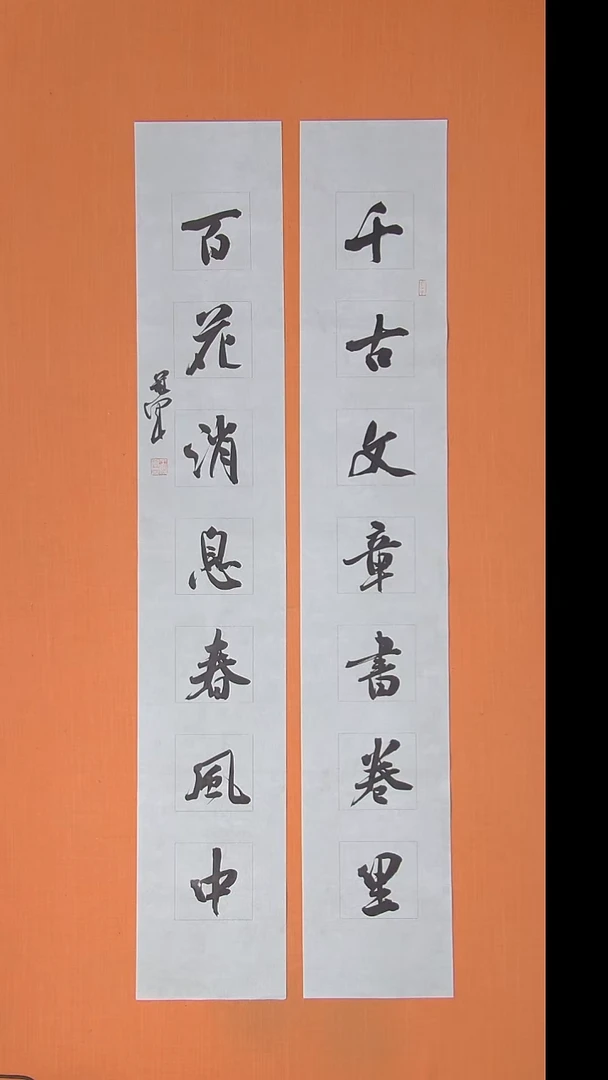 千古文章書卷里
百花消息春風中